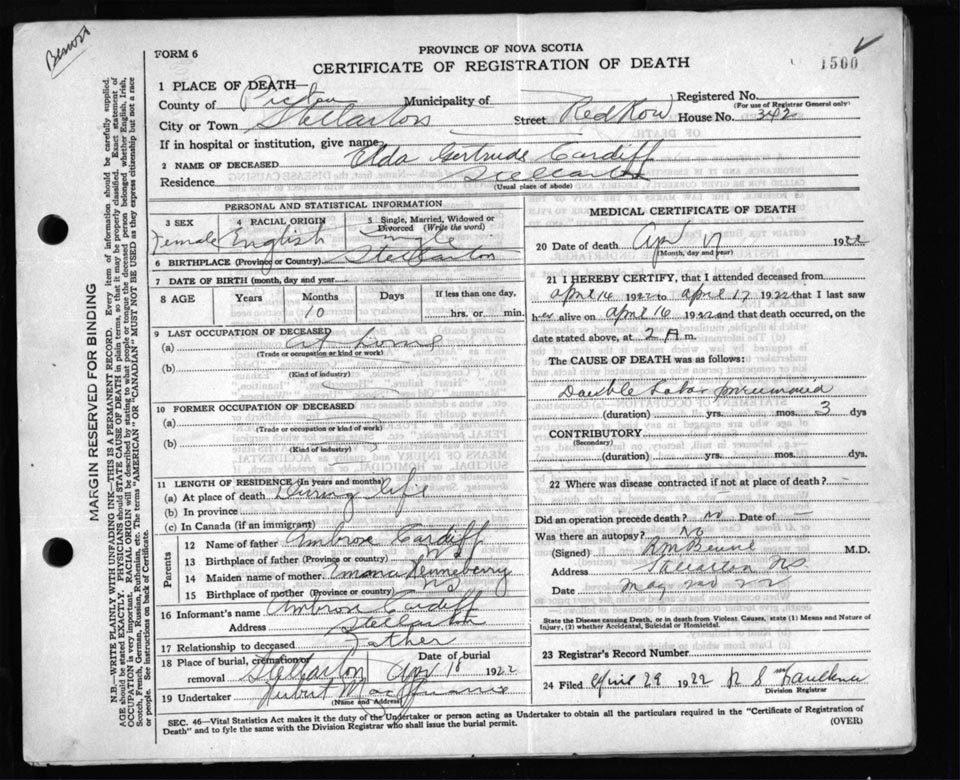 Benoit
FORM 6
PROVINCE OF NOVA SCOTIA
CERTIFICATE OF REGISTRATION OF DEATH
1500
1 PLACE OF DEATH—
County of Pictou Municipality of Registered No.
(For use of Registrar General only)
City or Town Stellarton Street Red Row House No. 342
If in hospital or institution, give name
2 NAME OF DECEASED Elda Gertrude Cardiff
Residence Stellarton
(Usual place of abode)
PERSONAL AND STATISTICAL INFORMATION
3 SEX 4 RACIAL ORIGIN 5 Single, Married, Widowed or Divorced (Write the word)
Female English Single
6 BIRTHPLACE (Province or Country) Stellarton
7 DATE OF BIRTH (month, day and year)
8 AGE Years Months Days If less than one day,
10 hrs. or min.
9 LAST OCCUPATION OF DECEASED
(a) at home
(Trade or occupation or kind or work)
(b)
(Kind of industry)
10 FORMER OCCUPATION OF DECEASED
(a)
(Trade or occupation or kind of work)
(b)
(Kind of industry)
11 LENGTH OF RESIDENCE (In years and months)
(a) At place of death During life
(b) In province
(c) In Canada (if an immigrant)
Parents
12 Name of father Ambrose Cardiff
13 Birthplace of father (Province or country) NS
14 Maiden name of mother Henneberry
15 Birthplace of mother (Province or country) NS
16 Informant's name Ambrose Cardiff
Address Stellarton
17 Relationship to deceased Father
18 Place of burial, cremation or removal Stellarton Date of burial Apr 18 1922
19 Undertaker
(Name and Address)
MEDICAL CERTIFICATE OF DEATH
20 Date of death Apr 17 1922
(Month, day and year)
21 I HEREBY CERTIFY, that I attended deceased from
April 14 1922 to April 17 1922 that I last saw
her alive on April 16 1922 and that death occurred, on
date stated above, at 2 A m.
The CAUSE OF DEATH was as follows:
Double Lobar pneumonia
(duration) yrs. mos. 3 dys
CONTRIBUTORY
(Secondary)
(duration) yrs. mos. dys.
22 Where was disease contracted if not at place of death?
Did an operation precede death? No Date of
Was there an autopsy? No
(Signed) M.D.
Address Stellarton NS
Date
State the Disease causing Death, or in death from Violent Causes, state (1) Means and Nature of
Injury, (2) whether Accidental, Suicidal or Homicidal.
23 Registrar's Record Number
24 Filed April 29 1922 Faulkner
Division Registrar
SEC. 46—Vital Statistics Act makes it the duty of the Undertaker or person acting as Undertaker to obtain all the particulars required in the "Certificate of Registration of
Death" and to fyle the same with the Division Registrar who shall issue the burial permit.
(OVER)
MARGIN RESERVED FOR BINDING
N.B.—WRITE PLAINLY WITH UNFADING INK—THIS IS A PERMANENT RECORD. Every item of information should be carefully supplied.
AGE should be stated EXACTLY. PHYSICIANS should STATE CAUSE OF DEATH in plain terms, so that it may be properly classified. Exact statement of
OCCUPATION is very important. RACIAL ORIGIN will be described by stating to what people or tongue the deceased person belonged whether English, Irish,
Scotch, French, German, Russian, Ruthenian, etc. The terms "AMERICAN" OR "CANADIAN" MUST NOT BE USED as they express citizenship but not a race
or people. See instructions on back of Certificate.